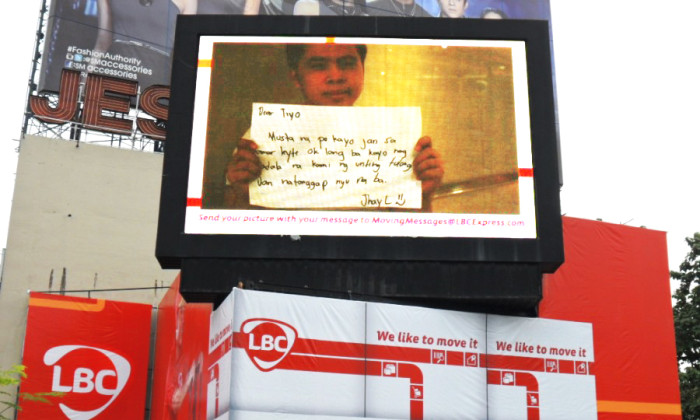 #FashionAuthority
SM accessories
SM accessories
JES
Dear Tiyo
Musta na po kayo jan sa
ok lang ba kayo
na kami ng
natanggap nyo na ba.
Jhay L
Send your picture with your message to MovingMessages@LBCExpress.com
LBC
We like to move it
We like to move it
LBC